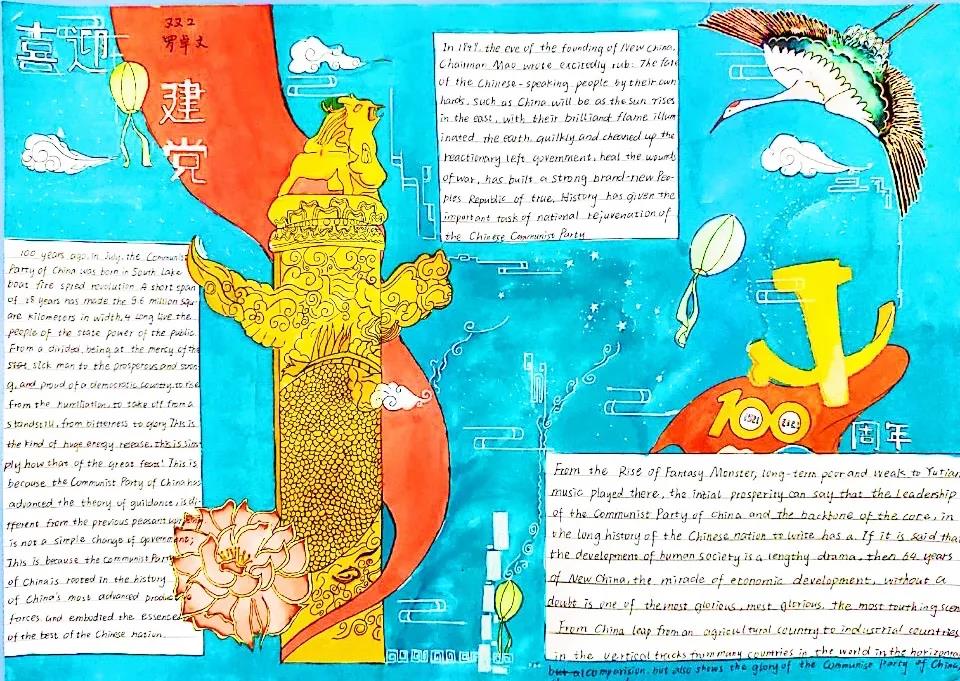 喜迎
建
党
In 1949, the eve of the founding of New China,
Chairman Mao wrote excitedly rub: The fate
of the Chinese-speaking people by their own
hards, such as China will be as the sun rises
in the east, with their brilliant flame illum
inated the earth, quilkly and cheaned up the
reactionary left government, heal the wounds
of war, has built a strong brand-new Peo-
ples Republic of true, History has given the
important task of national rejuvenation of
the Chinese Communist Party
100 years ago, in July, the Communist
Party of China was born in South Lake
boat fire spred revolution. A short span
of 28 years has made the 9.6 million squ-
are kilometers in width, 4 Long live the
people of the state power of the public
From a divided, being at the mercy of the
sick man to the prosperous and stron
g, and proud of a democratic country, to rise
from the humiliation, to take off from a
standstill, from bitterness to glory This is
the kind of huge energy release, this is sim
ply how that of the great feats! This is
because the Communist Party of China has
advanced the theory of guildance, is di-
fferent from the previous peasant
is not a simple change of government;
This is because the communist Party
of China is rooted in the history
of China's most advanced productive
forces and embodied the essence
of the best of the Chinese nation.
100
1921
2021
周年
From the Rise of Fantasy Monster, long-term poor and weak to Yutian
music played there, the initial prosperity can say that the leadership
of the Communist Party of China and the backbone of the core, in
the long history of the Chinese nation to write has a. If it is said that
the development of human society is a lengthy drama, then 64 years
of New China, the miracle of economic development, without a
doubt is one of the most glorious, most glorious, the most touthing scen
From China leap from an agricultural country to industrial countries
in the vertical tracks from many countries in the world in the horizontal
comparision, but also shows the glory of the Communist Party of China,